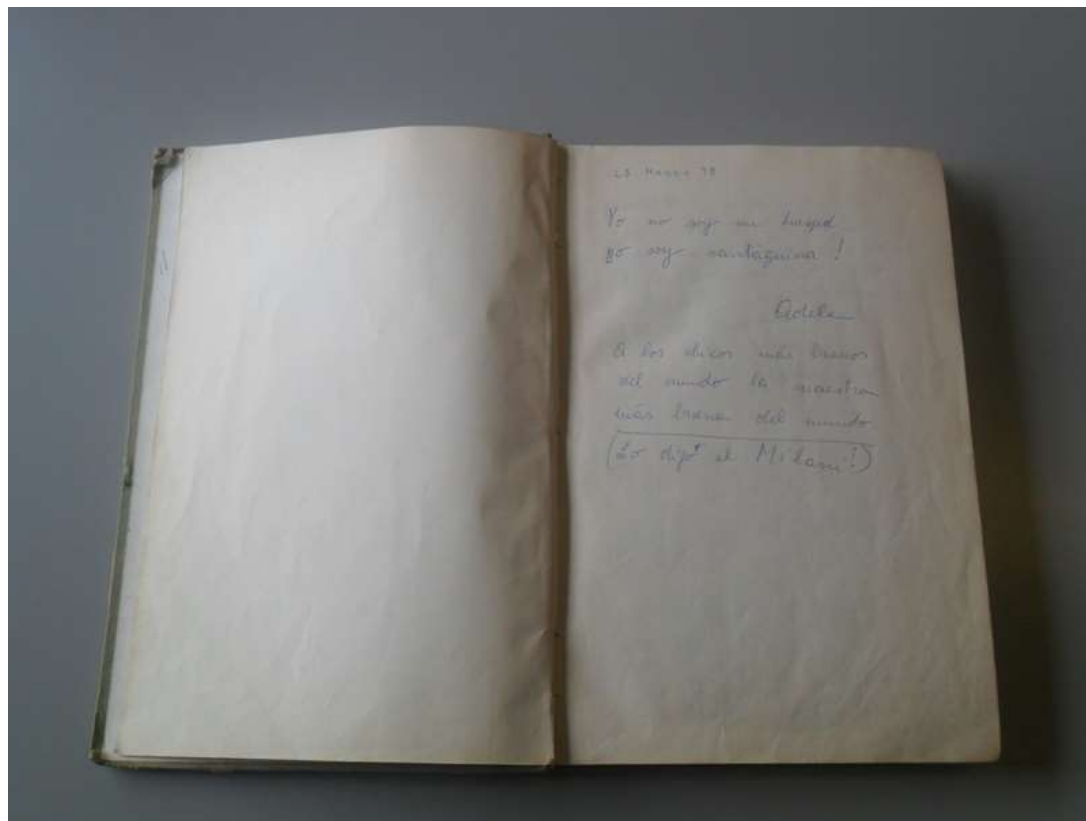 23. Marzo 78
Yo no soy un huesped
yo soy santiaguina !
Adela
A los chicos más buenos
del mundo la maestra
más buena del mundo
(Lo dijo el Milani!)